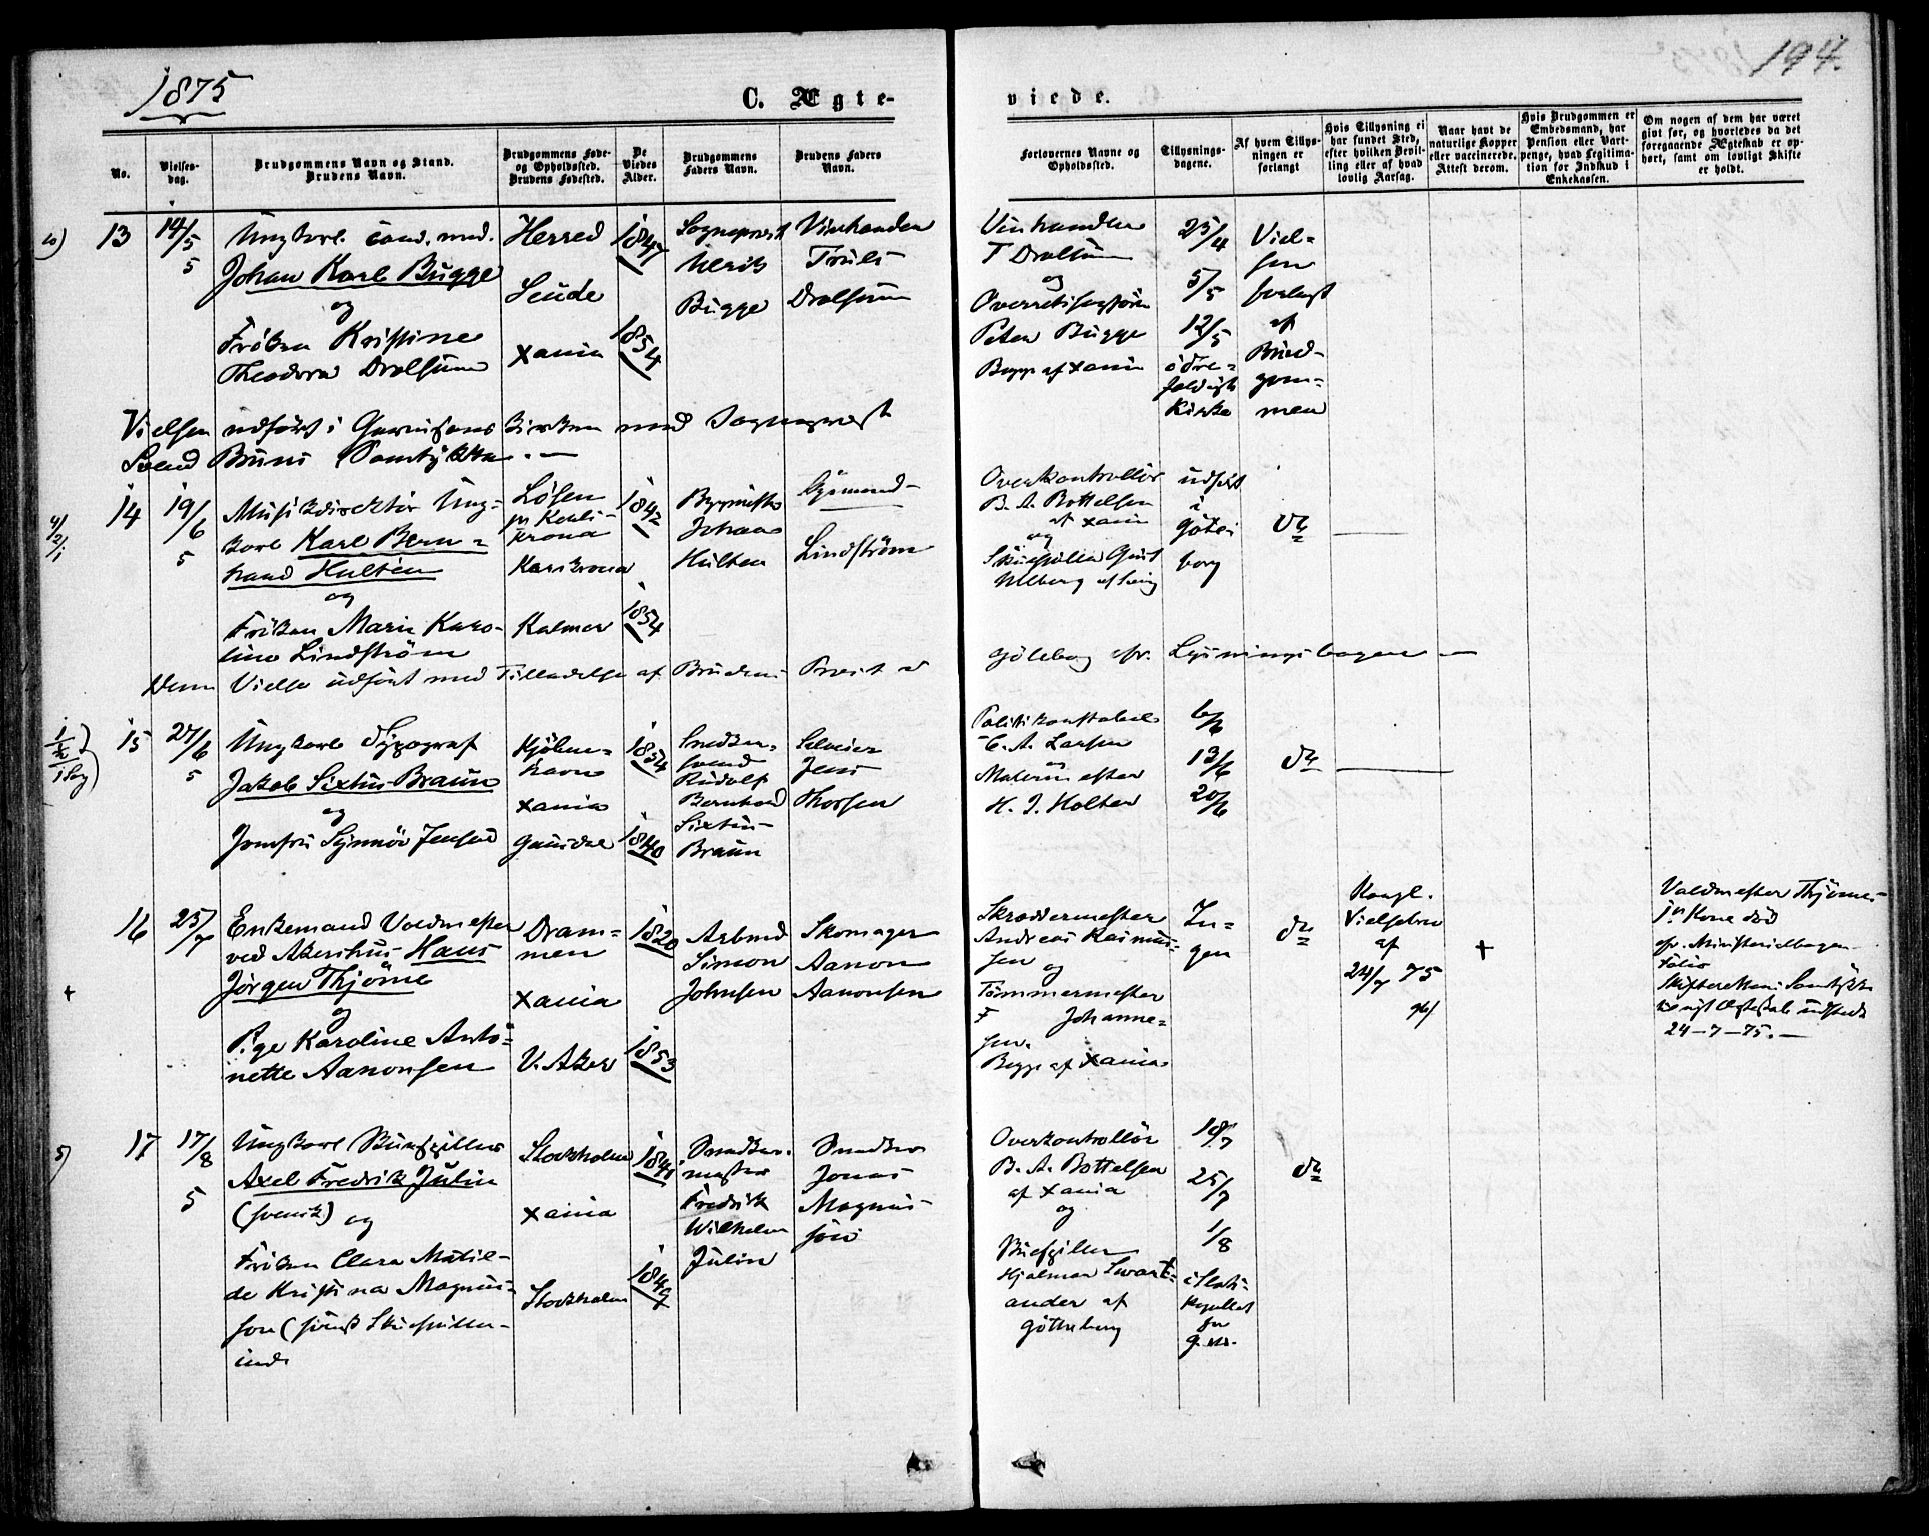 1875
194.
C. Ægte-
viede.
No.
Vielses-
dag.
Brudgommens Navn og Stand.
Brudens Navn.
Brudgommens Føde-
og Opholdssted.
Brudens Fødested.
De
Viedes
Alder.
Brudgommens
Faders Navn.
Brudens Faders
Navn.
Forlovernes Navne og
Opholdssted.
Tillysnings-
dagene.
Af hvem Tillys-
ningen er
forlangt
Hvis Tillysning ei
har fundet Sted,
efter hvilken Bevil-
ling eller af hvad
lovlig Aarsag.
Naar havt de
naturlige Kopper
eller vaccinerede.
Attest derom.
Hvis Brudgommen er
Embedsmand, har
Pension eller Vart-
penge, hvad Legitima-
tion for Indskud i
Enkekassen.
Om nogen af dem har været
givt før, og hvorledes da det
foregaaende Ægteskab er op-
hørt, samt om lovligt Skifte
er holdt.
13
14/5
5
Ungkarl cand. med.
Johan Karl Bugge
og
Frøken Kristine
Theodora Dralsum
Herred
Xania
1847
1854
Sogneprest
Ulrik
Bugge
Vinhandler
Truls
Dralsum
Vinhandler
T Dralsum
og
Peter Bugge
Begge af Xania
25/4
5/5
12/5
i Tre-
foldigh
Kirke
Viel-
sen
forlangt
af
Brud-
gom-
men
Vielsen udført i Garnisons Kirken med Sogneprest
Svend Bruns Samtykke. —
14
19/6
5
Musikdirektør Ung-
karl Karl Bern-
hard Hulten
og
Frøken Marie Karo-
line Lindström
Karlskrona
Kalmar
1842
1854
Johan
Hulten
Lindström
Overkontrollør
B. A. Bottelsen
af Xania
og
udført
i
Göte-
borg
do
Denne Vielse udført med Tilladelse af Brudens Prest i
Göteborg cfr. Lysningsbogen —
15
27/6
5
Ungkarl Typograf
Jakob Sixtus Braun
og
Jomfru Synnöv Jensen
Kjøben-
havn
Xania
Gausdal
1854
1840
Snedker
Svend
Rudolf
Bernhard
Sixtus
Braun
Selveier
Jens
Thorsen
Politikonstabel
C. A. Larsen
og
Malermester
H. J. Holter
6/6
13/6
20/6
do
16
25/7
Enkemand Voldmester
ved Akershus Hans
Jørgen Thjöme
og
Pige Karoline Anto-
nette Aanonsen
Dram-
men
Xania
V. Aker
1820
1853
Arbmd
Simon
Johnsen
Skomager
Aanon
Aanonsen
Skræddermester
Andreas Rasmus-
sen
og
Tømmermester
F Johanne-
sen.
Begge af Xania
In-
gen
do
Kongl.
Vielsebrev
af
24/7 75
+
Voldmester Thjömes
Kone död
cfr. Ministerialbogen
folio
24-7-75. —
17
17/8
5
Ungkarl Skuespiller
Axel Fredrik Julin
(svensk) og
Frøken Clara Matil-
de Kristina Magnus-
son (svensk Skuespiller-
inde
Stockholm
Xania
Stockholm
1849
Snedker-
mester
Fredrik
Wilhelm
Julin
Snedker
Jonas
Magnus-
son
Overkontrollør
B. A. Bottelsen
af Xania
og
Skuespiller
Hjalmar Swart-
ander af
Götheborg
18/7
25/7
1/8
i Slots-
kapellet
do